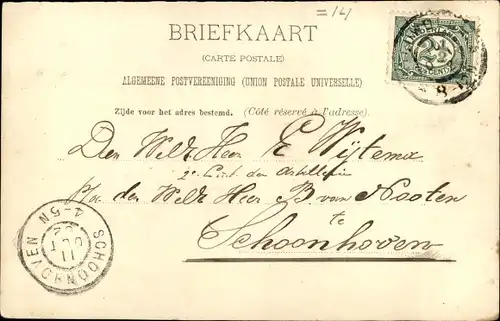 =14
BRIEFKAART
(CARTE POSTALE)
ALGEMEENE POSTVEREENIGING (UNION POSTALE UNIVERSELLE)
Zijde voor het adres bestemd. (Côté réservé à l'adresse).
NEDERLAND
2½
CENT
8
Den WelEd. Heer E. Wijtema
2e Luit. der Artillerie
p/a. den WelEd. Heer B. van Nooten
te
Schoonhoven
SCHOONHOVEN
4-5N
11